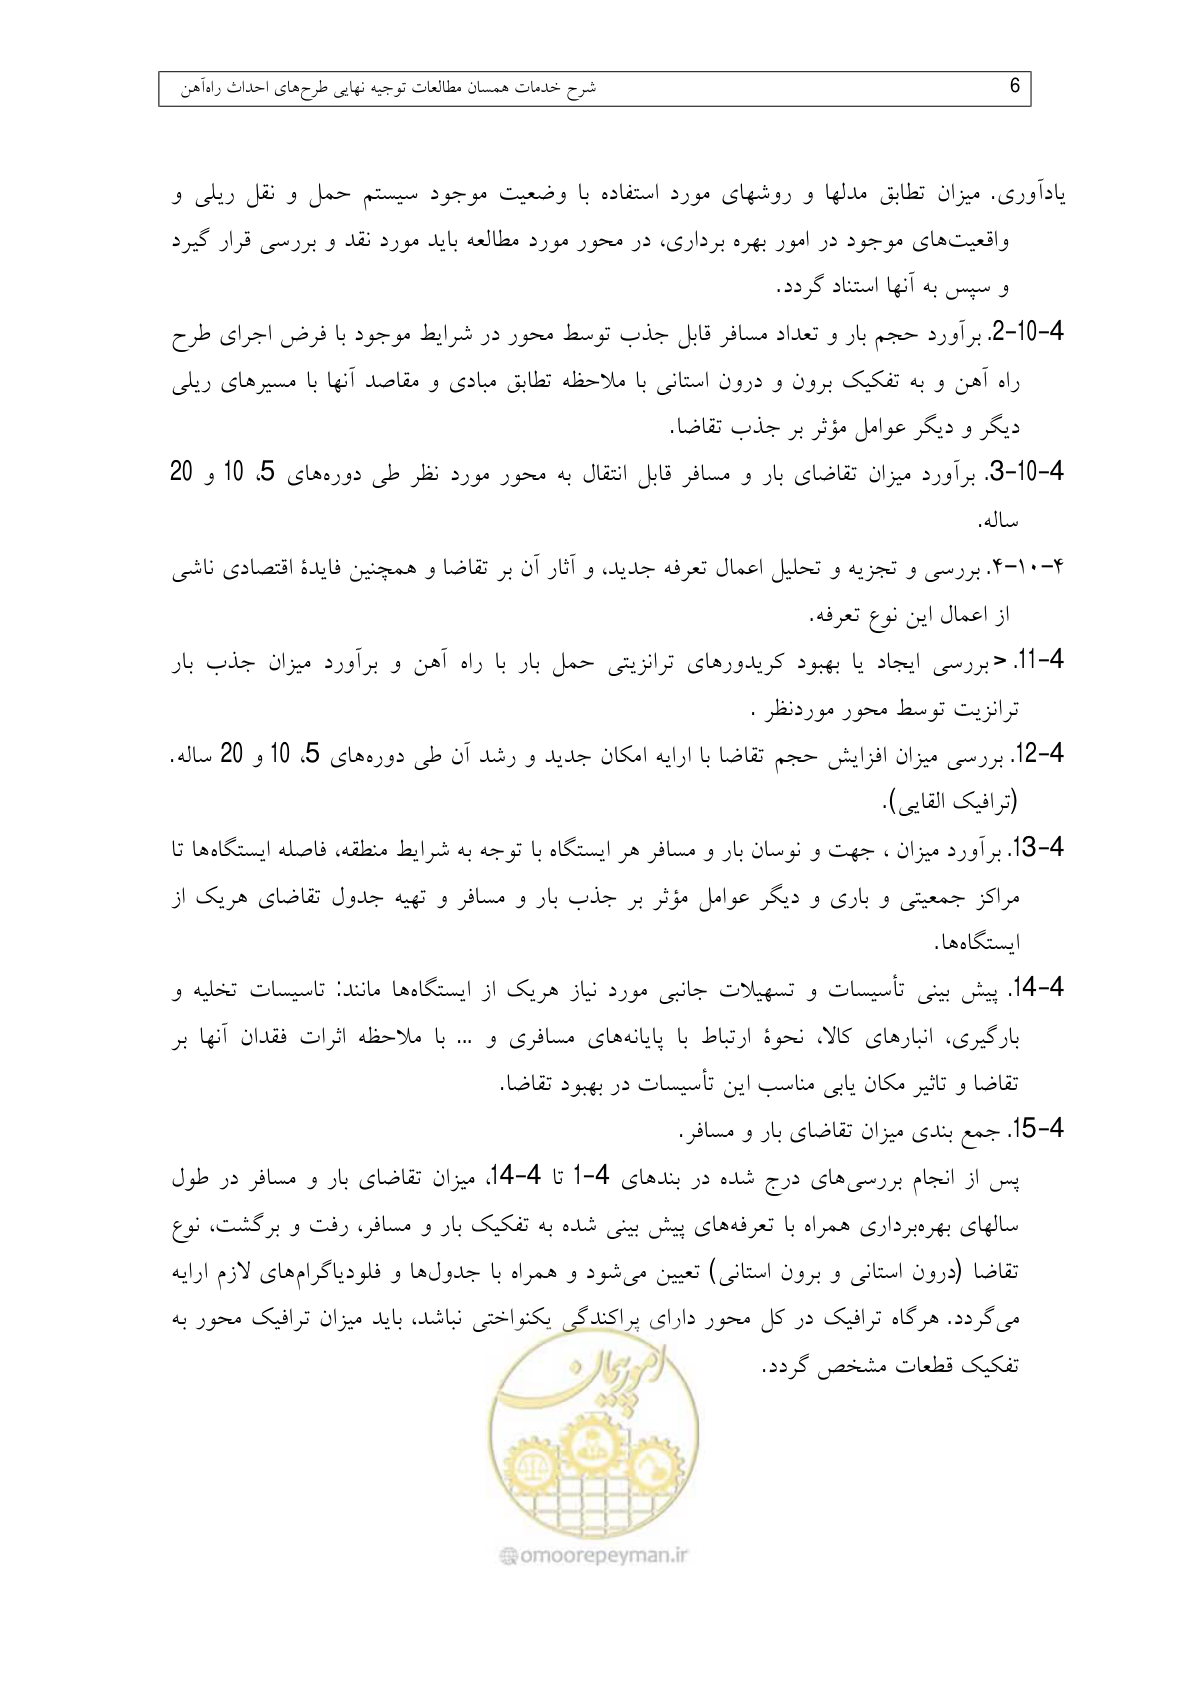 6 شرح خدمات همسان مطالعات توجیه نهایی طرح‌های احداث راه‌آهن
یادآوری. میزان تطابق مدلها و روشهای مورد استفاده با وضعیت موجود سیستم حمل و نقل ریلی و
واقعیت‌های موجود در امور بهره برداری، در محور مورد مطالعه باید مورد نقد و بررسی قرار گیرد
و سپس به آنها استناد گردد.
4-10-2. برآورد حجم بار و تعداد مسافر قابل جذب توسط محور در شرایط موجود با فرض اجرای طرح
راه آهن و به تفکیک برون و درون استانی با ملاحظه تطابق مبادی و مقاصد آنها با مسیرهای ریلی
دیگر و دیگر عوامل مؤثر بر جذب تقاضا.
4-10-3. برآورد میزان تقاضای بار و مسافر قابل انتقال به محور مورد نظر طی دوره‌های 5، 10 و 20
ساله.
۴-۱۰-۴. بررسی و تجزیه و تحلیل اعمال تعرفه جدید، و آثار آن بر تقاضا و همچنین فایدۀ اقتصادی ناشی
از اعمال این نوع تعرفه.
4-11. < بررسی ایجاد یا بهبود کریدورهای ترانزیتی حمل بار با راه آهن و برآورد میزان جذب بار
ترانزیت توسط محور موردنظر .
4-12. بررسی میزان افزایش حجم تقاضا با ارایه امکان جدید و رشد آن طی دوره‌های 5، 10 و 20 ساله.
(ترافیک القایی).
4-13. برآورد میزان ، جهت و نوسان بار و مسافر هر ایستگاه با توجه به شرایط منطقه، فاصله ایستگاه‌ها تا
مراکز جمعیتی و باری و دیگر عوامل مؤثر بر جذب بار و مسافر و تهیه جدول تقاضای هریک از
ایستگاه‌ها.
4-14. پیش بینی تأسیسات و تسهیلات جانبی مورد نیاز هریک از ایستگاه‌ها مانند: تاسیسات تخلیه و
بارگیری، انبارهای کالا، نحوۀ ارتباط با پایانه‌های مسافری و ... با ملاحظه اثرات فقدان آنها بر
تقاضا و تاثیر مکان یابی مناسب این تأسیسات در بهبود تقاضا.
4-15. جمع بندی میزان تقاضای بار و مسافر.
پس از انجام بررسی‌های درج شده در بندهای 4-1 تا 4-14، میزان تقاضای بار و مسافر در طول
سالهای بهره‌برداری همراه با تعرفه‌های پیش بینی شده به تفکیک بار و مسافر، رفت و برگشت، نوع
تقاضا (درون استانی و برون استانی) تعیین می‌شود و همراه با جدول‌ها و فلودیاگرام‌های لازم ارایه
می‌گردد. هرگاه ترافیک در کل محور دارای پراکندگی یکنواختی نباشد، باید میزان ترافیک محور به
تفکیک قطعات مشخص گردد.
امور پیمان
@omoorepeyman.ir